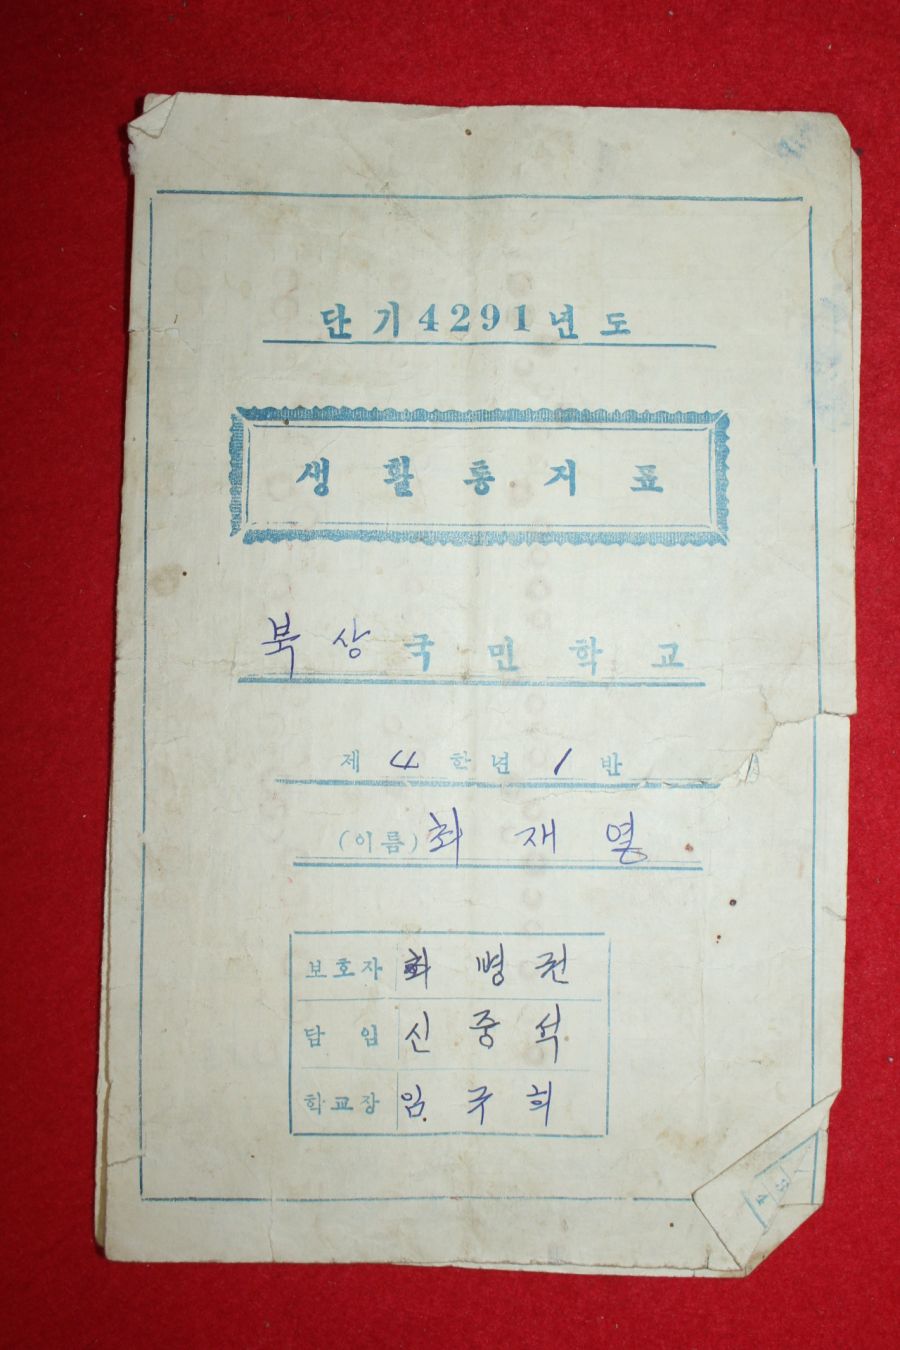 단기4291년도
생활통지표
북상국민학교
제 4 학년 1 반
(이름) 최재열
보호자 최병권
담임 신중석
학교장 임구희